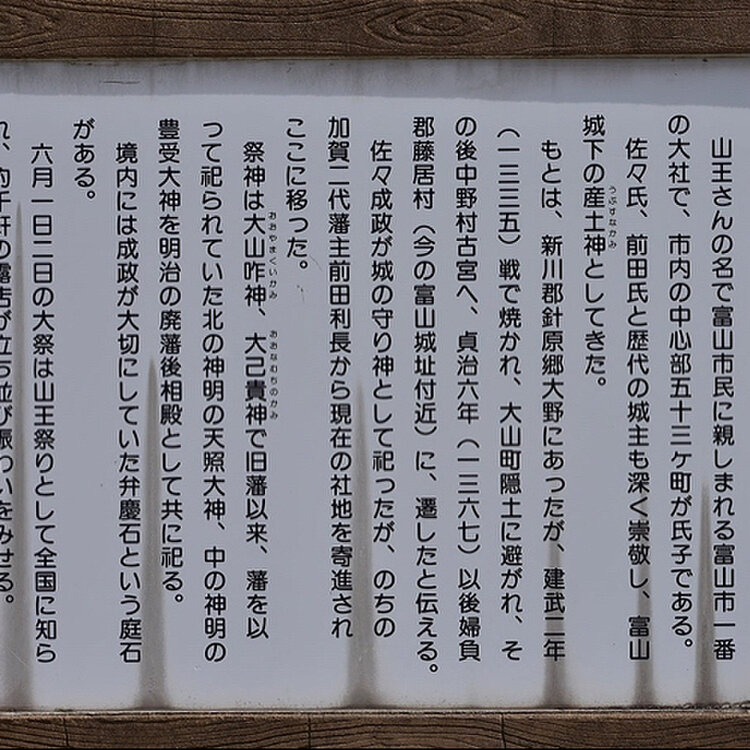 山王さんの名で富山市民に親しまれる富山市一番
の大社で、市内の中心部五十三ヶ町が氏子である。
佐々氏、前田氏と歴代の城主も深く崇敬し、富山
城下の産土神としてきた。
うぶすなかみ
もとは、新川郡針原郷大野にあったが、建武二年
（一三三五）戦で焼かれ、大山町隠土に避がれ、そ
の後中野村古宮へ、貞治六年（一三六七）以後婦負
郡藤居村（今の富山城址付近）に、遷したと伝える。
佐々成政が城の守り神として祀ったが、のちの
加賀二代藩主前田利長から現在の社地を寄進され
ここに移った。
祭神は大山咋神、大己貴神で旧藩以来、藩を以
おおやまくいかみ
おおなむちのかみ
つて祀られていた北の神明の天照大神、中の神明の
豊受大神を明治の廃藩後相殿として共に祀る。
境内には成政が大切にしていた弁慶石という庭石
がある。
六月一日二日の大祭は山王祭りとして全国に知ら
れ、約千軒の露店が立ち並び賑わいをみせる。